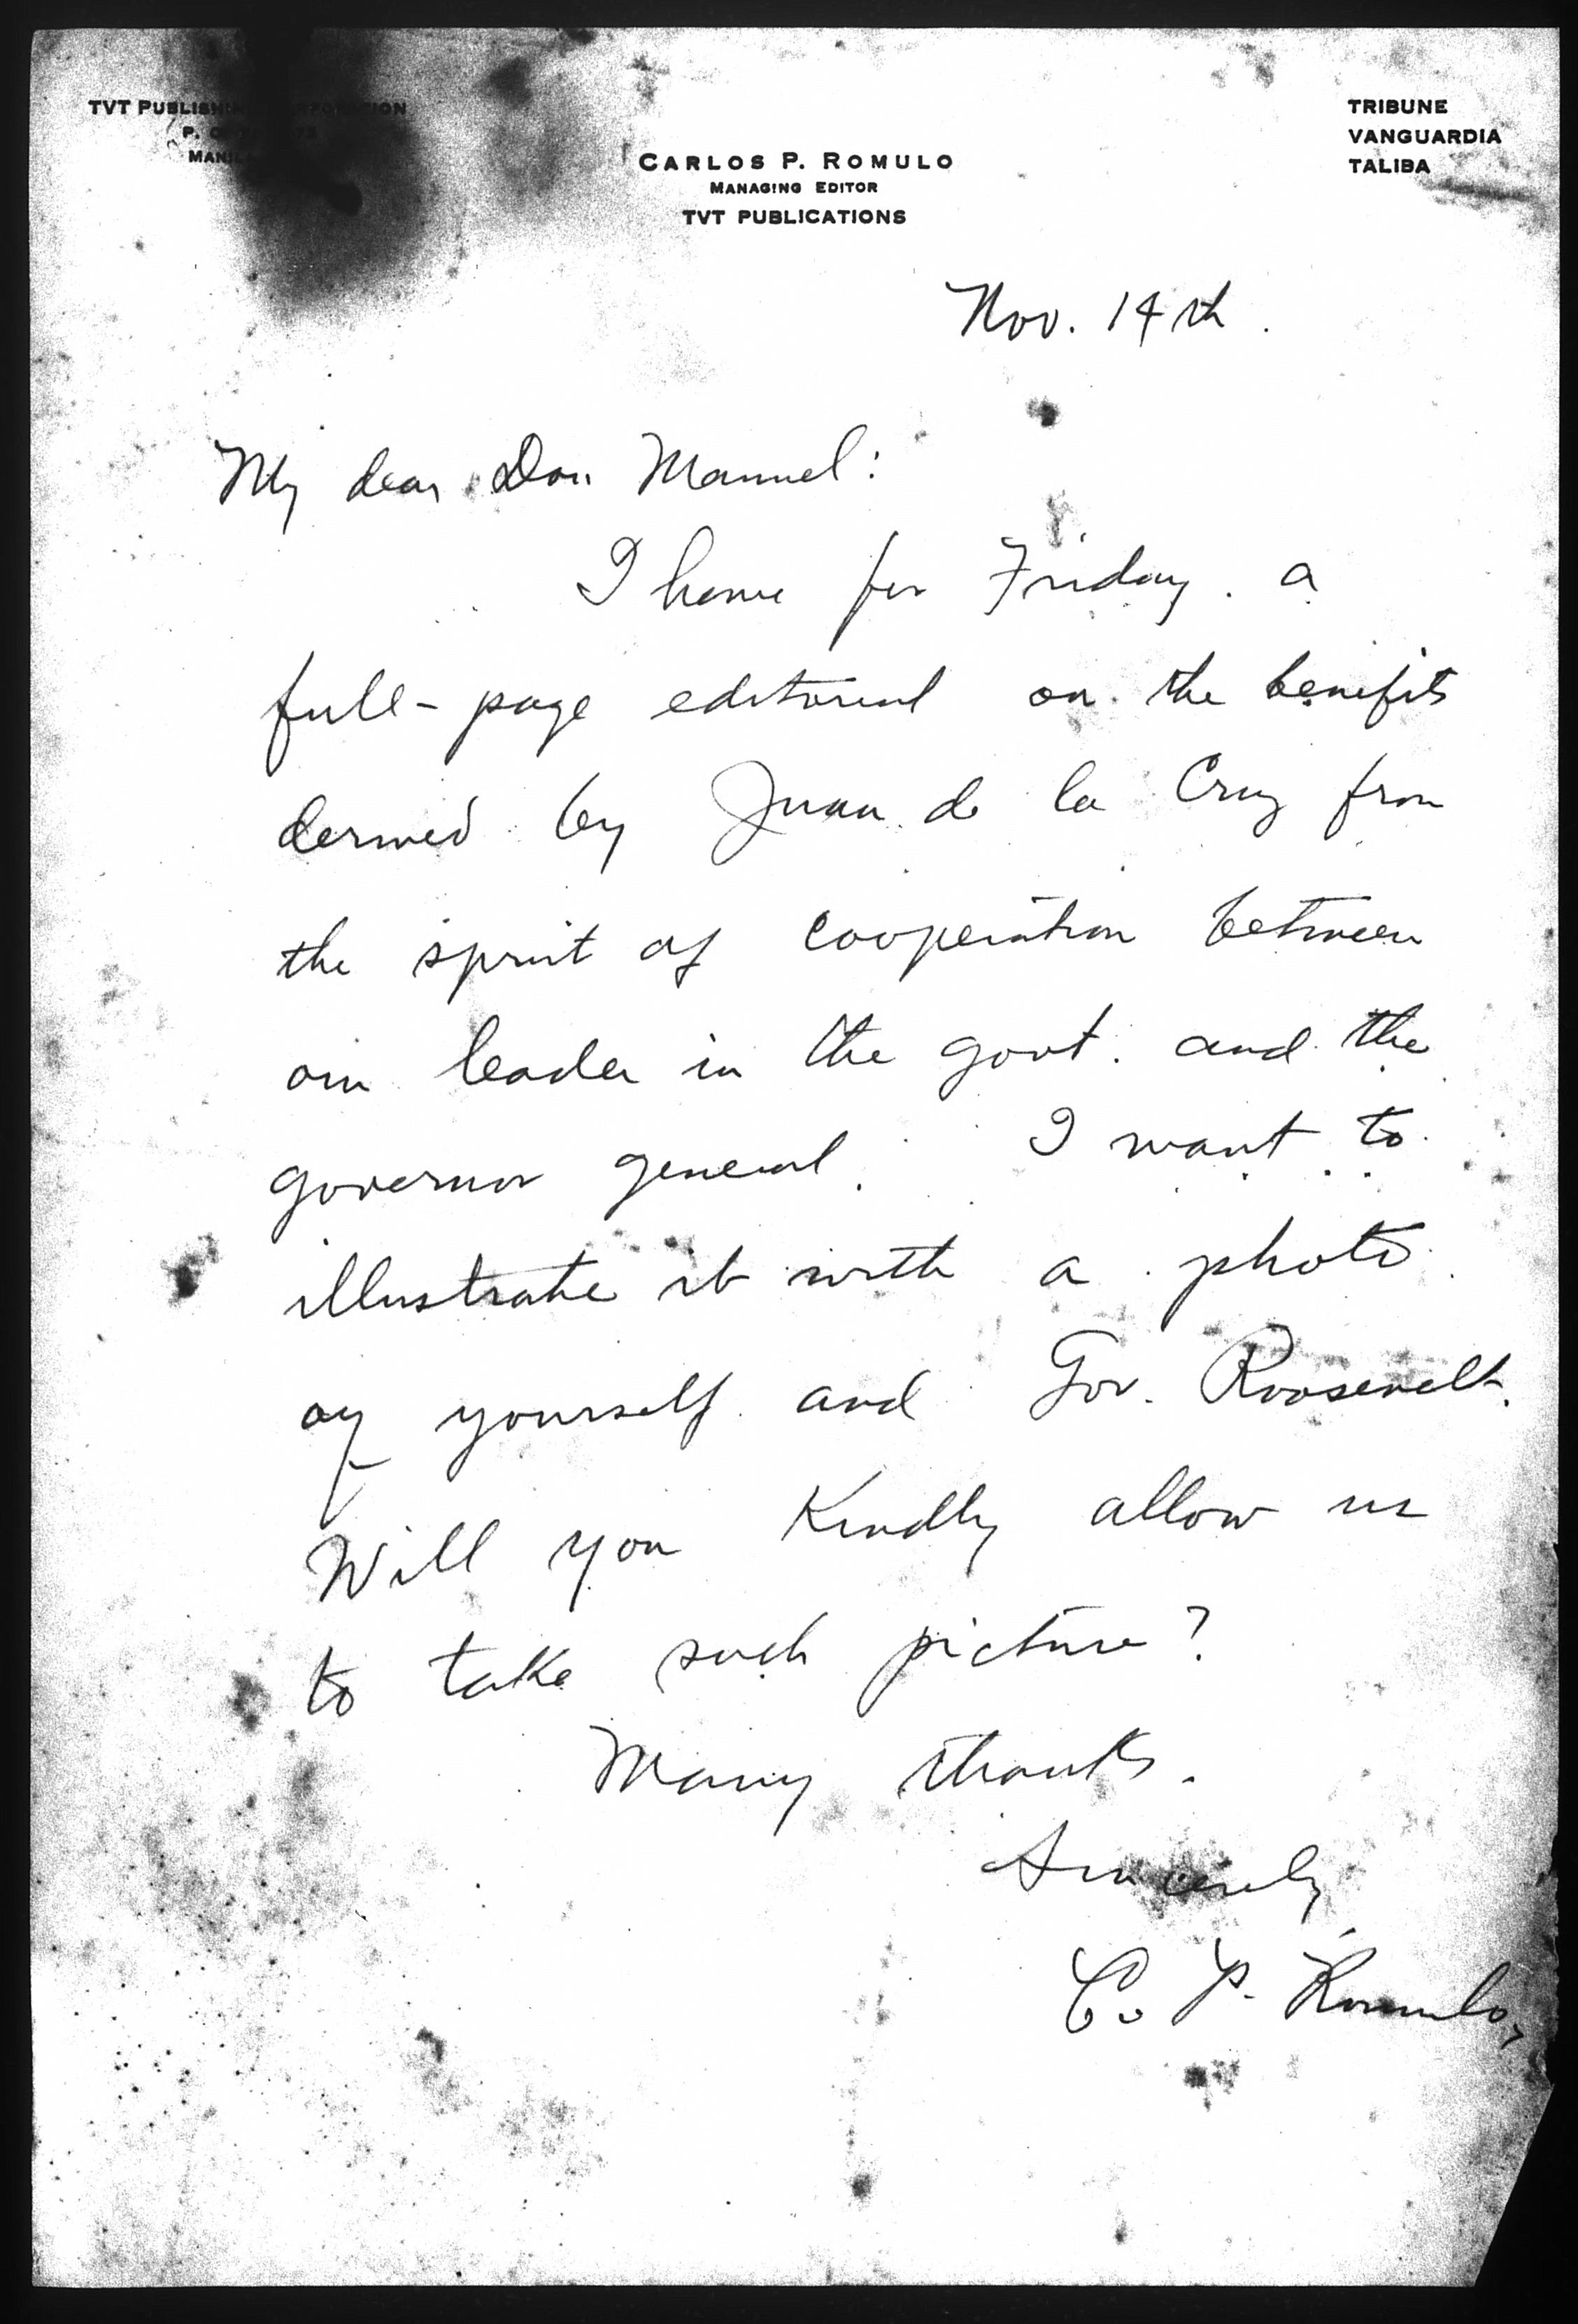 TVT PUBLISHING CORPORATION
P. O.
MANILA
TRIBUNE
VANGUARDIA
TALIBA
CARLOS P. ROMULO
MANAGING EDITOR
TVT PUBLICATIONS
Nov. 14th.
My dear Don Manuel:
I have for Friday a
full-page editorial on the benefits
derived by Juan de la Cruz from
the spirit of cooperation between
our leader in the govt. and the
governor general. I want to
illustrate it with a photo
of yourself and Gov. Roosevelt.
Will you kindly allow us
to take such picture?
Many thanks.
Sincerely,
C. P. Romulo